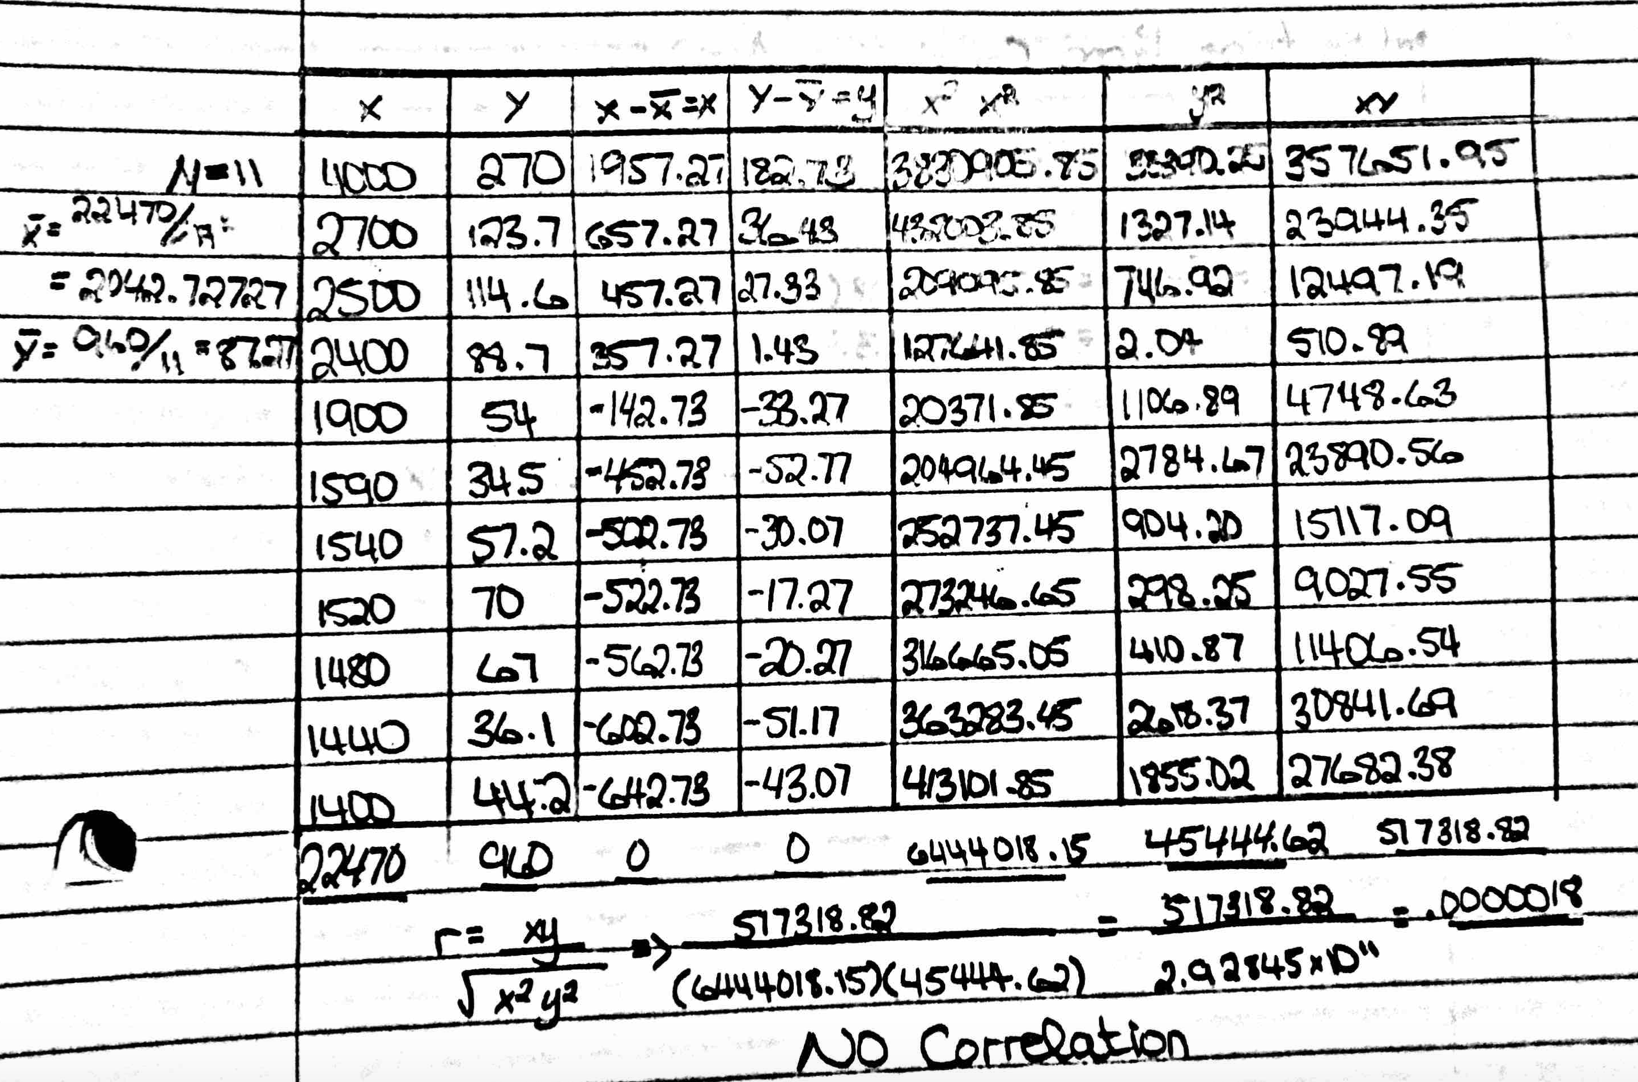 x y x-x̄=x y-ȳ=y x² x² y² xy
N=11 4000 270 1957.27 182.73 3830905.85 33390.25 357651.95
x̄= 22470/11= 2700 123.7 657.27 36.43 432003.85 1327.14 23944.35
= 2042.72727 2500 114.6 457.27 27.33 209095.85 746.92 12497.19
ȳ= 960/11 = 87.27 2400 88.7 357.27 1.43 127641.85 2.04 510.89
1900 54 -142.73 -33.27 20371.85 1106.89 4748.63
1590 34.5 -452.73 -52.77 204964.45 2784.67 23890.56
1540 57.2 -502.73 -30.07 252737.45 904.20 15117.09
1520 70 -522.73 -17.27 273246.65 298.25 9027.55
1480 67 -562.73 -20.27 316665.05 410.87 11406.54
1440 36.1 -602.73 -51.17 363283.45 2618.37 30841.69
1400 44.2 -642.73 -43.07 413101.85 1855.02 27682.38
22470 960 0 0 6444018.15 45444.62 517318.82
r = xy/√x²y² => 517318.82/(6444018.15)(45444.62) = 517318.82/2.92845x10¹¹ = .0000018
NO Correlation